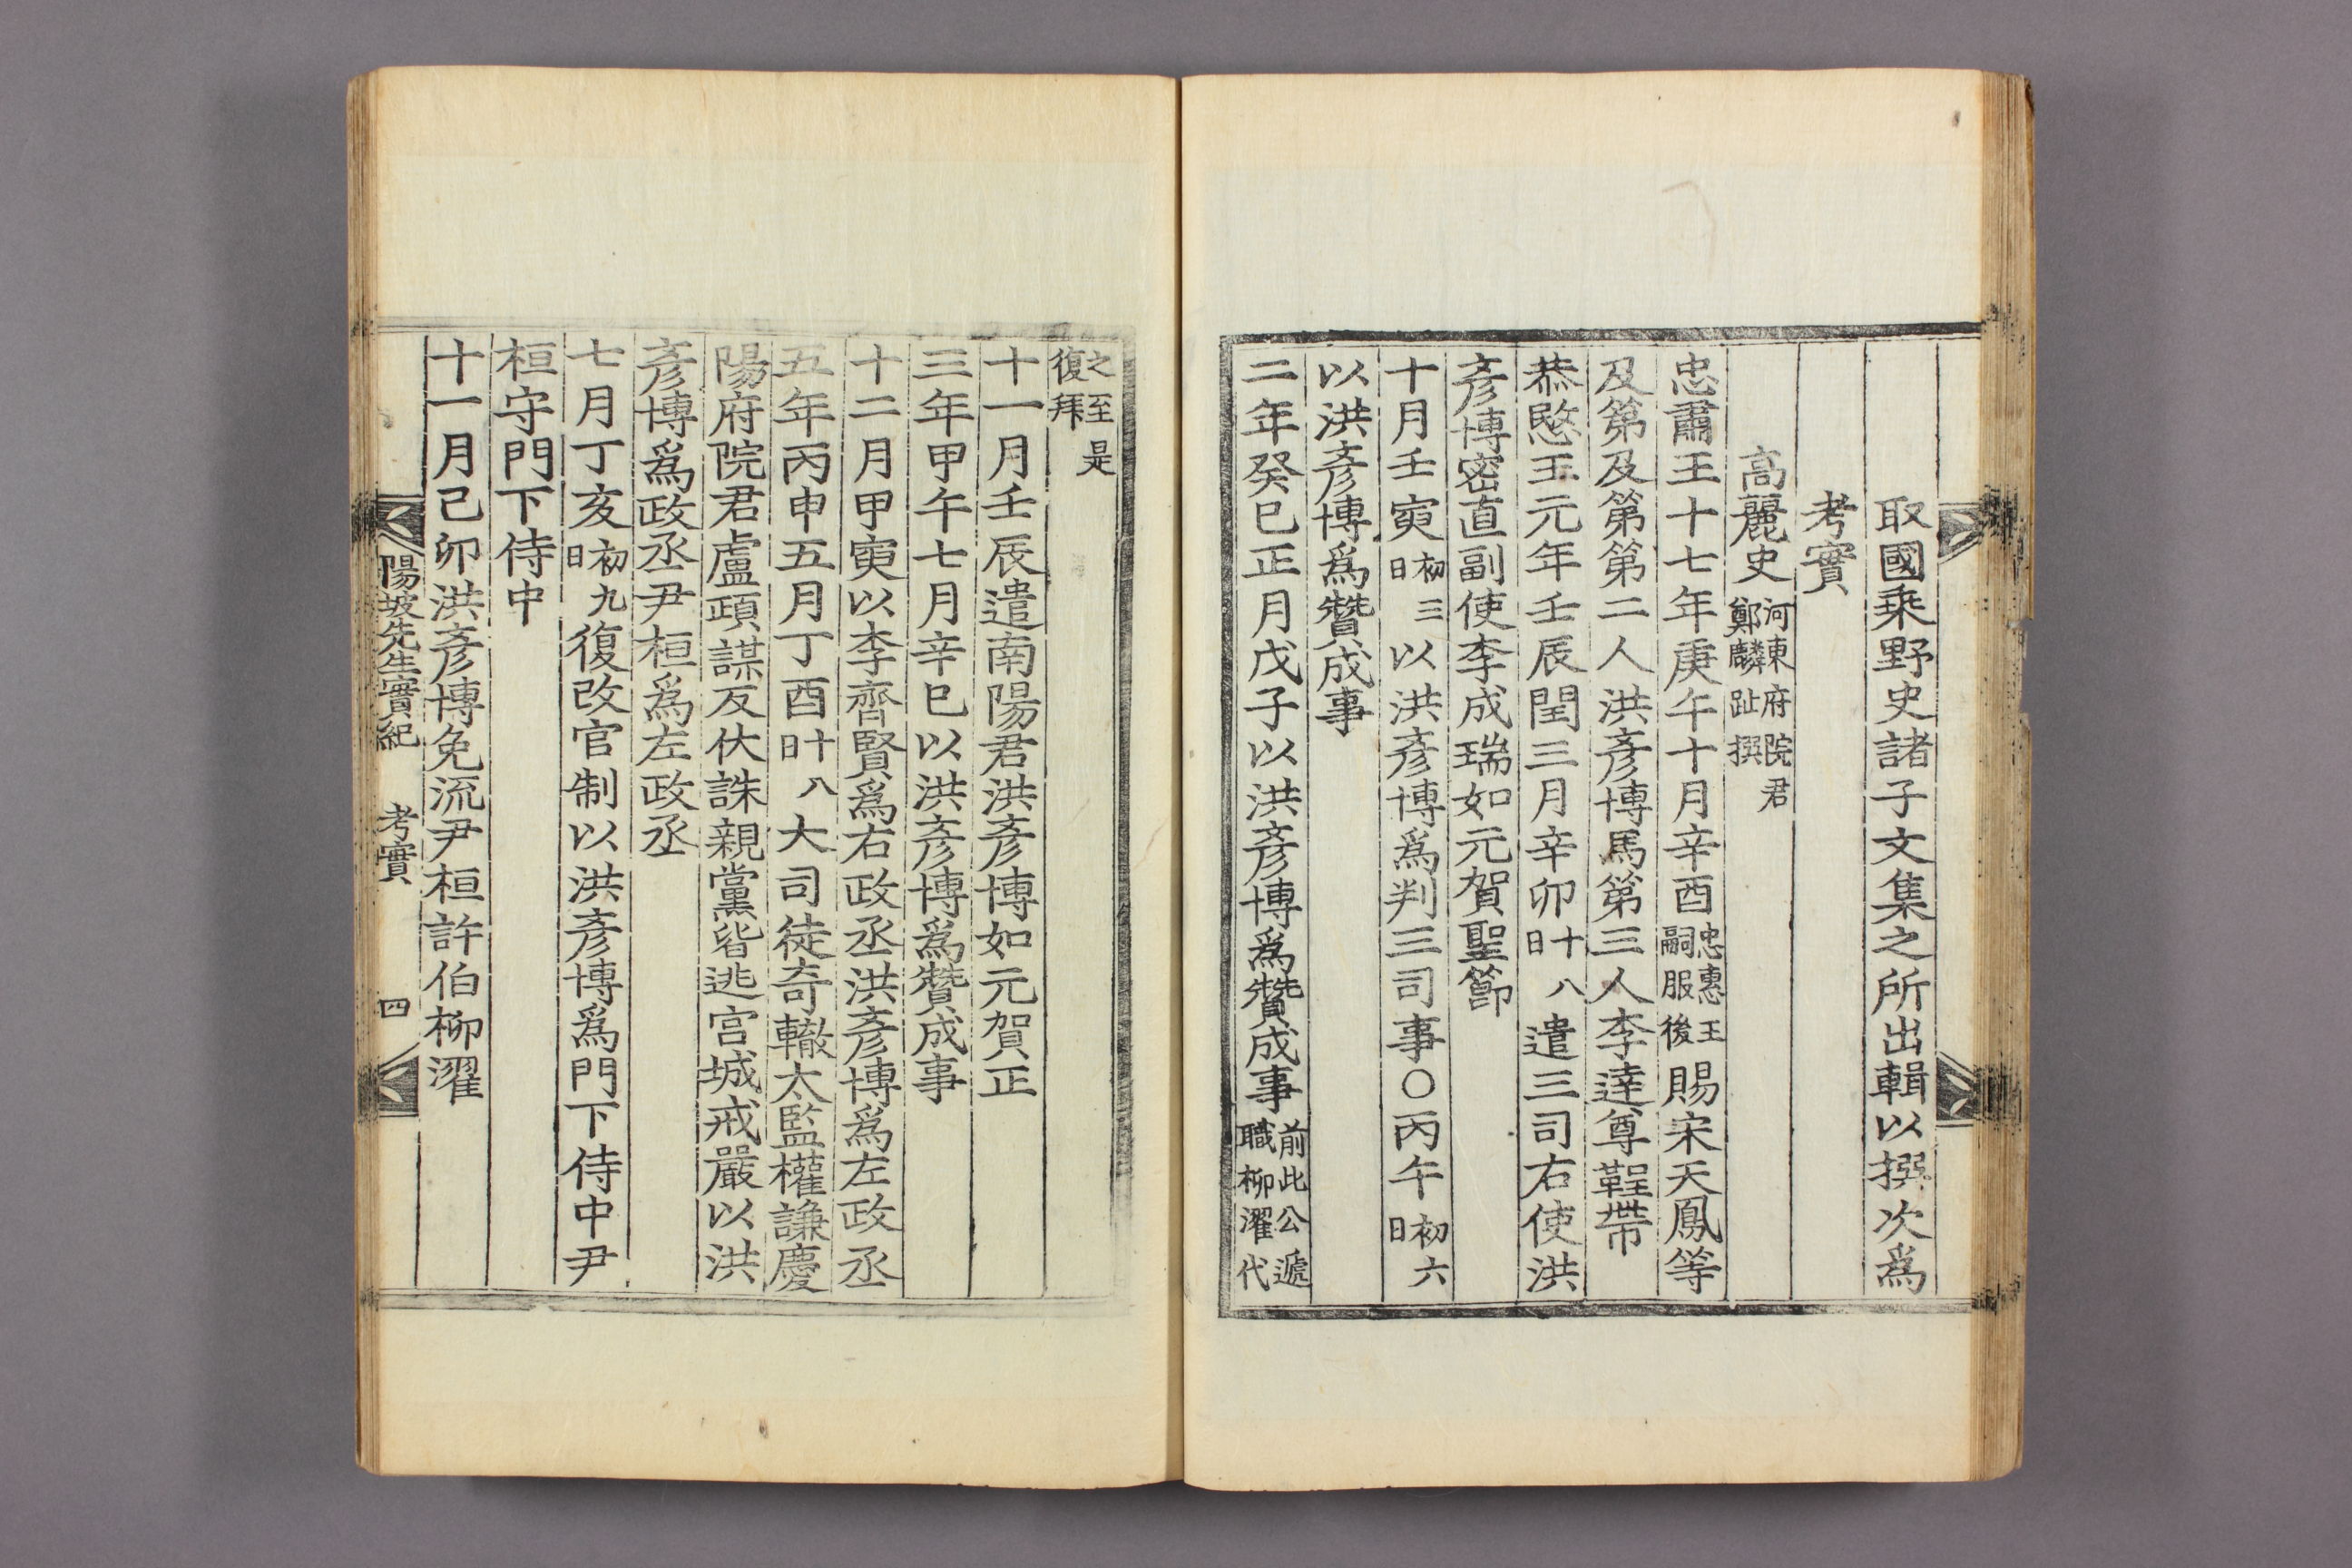 取國乘野史諸子文集之所出輯以撰次爲
考實
高麗史河東府院君
鄭麟趾撰
忠肅王十七年庚午十月辛酉忠惠王
嗣服後賜宋天鳳等
及第及第第二人洪彥博馬第三人李達尊鞓帶
恭愍王元年壬辰閏三月辛卯十八
日遣三司右使洪
彥博密直副使李成瑞如元賀聖節
十月壬寅初三
日以洪彥博爲判三司事○丙午初六
日
以洪彥博爲贊成事
二年癸巳正月戊子以洪彥博爲贊成事前此公遞
職柳濯代
之至是
復拜
十一月壬辰遣南陽君洪彥博如元賀正
三年甲午七月辛巳以洪彥博爲贊成事
十二月甲寅以李齊賢爲右政丞洪彥博爲左政丞
五年丙申五月丁酉十八
日大司徒奇轍太監權謙慶
陽府院君盧頙謀反伏誅親黨皆逃宮城戒嚴以洪
彥博爲政丞尹桓爲左政丞
七月丁亥初九
日復改官制以洪彥博爲門下侍中尹
桓守門下侍中
十一月己卯洪彥博免流尹桓許伯柳濯
陽坡先生實紀 考實 四